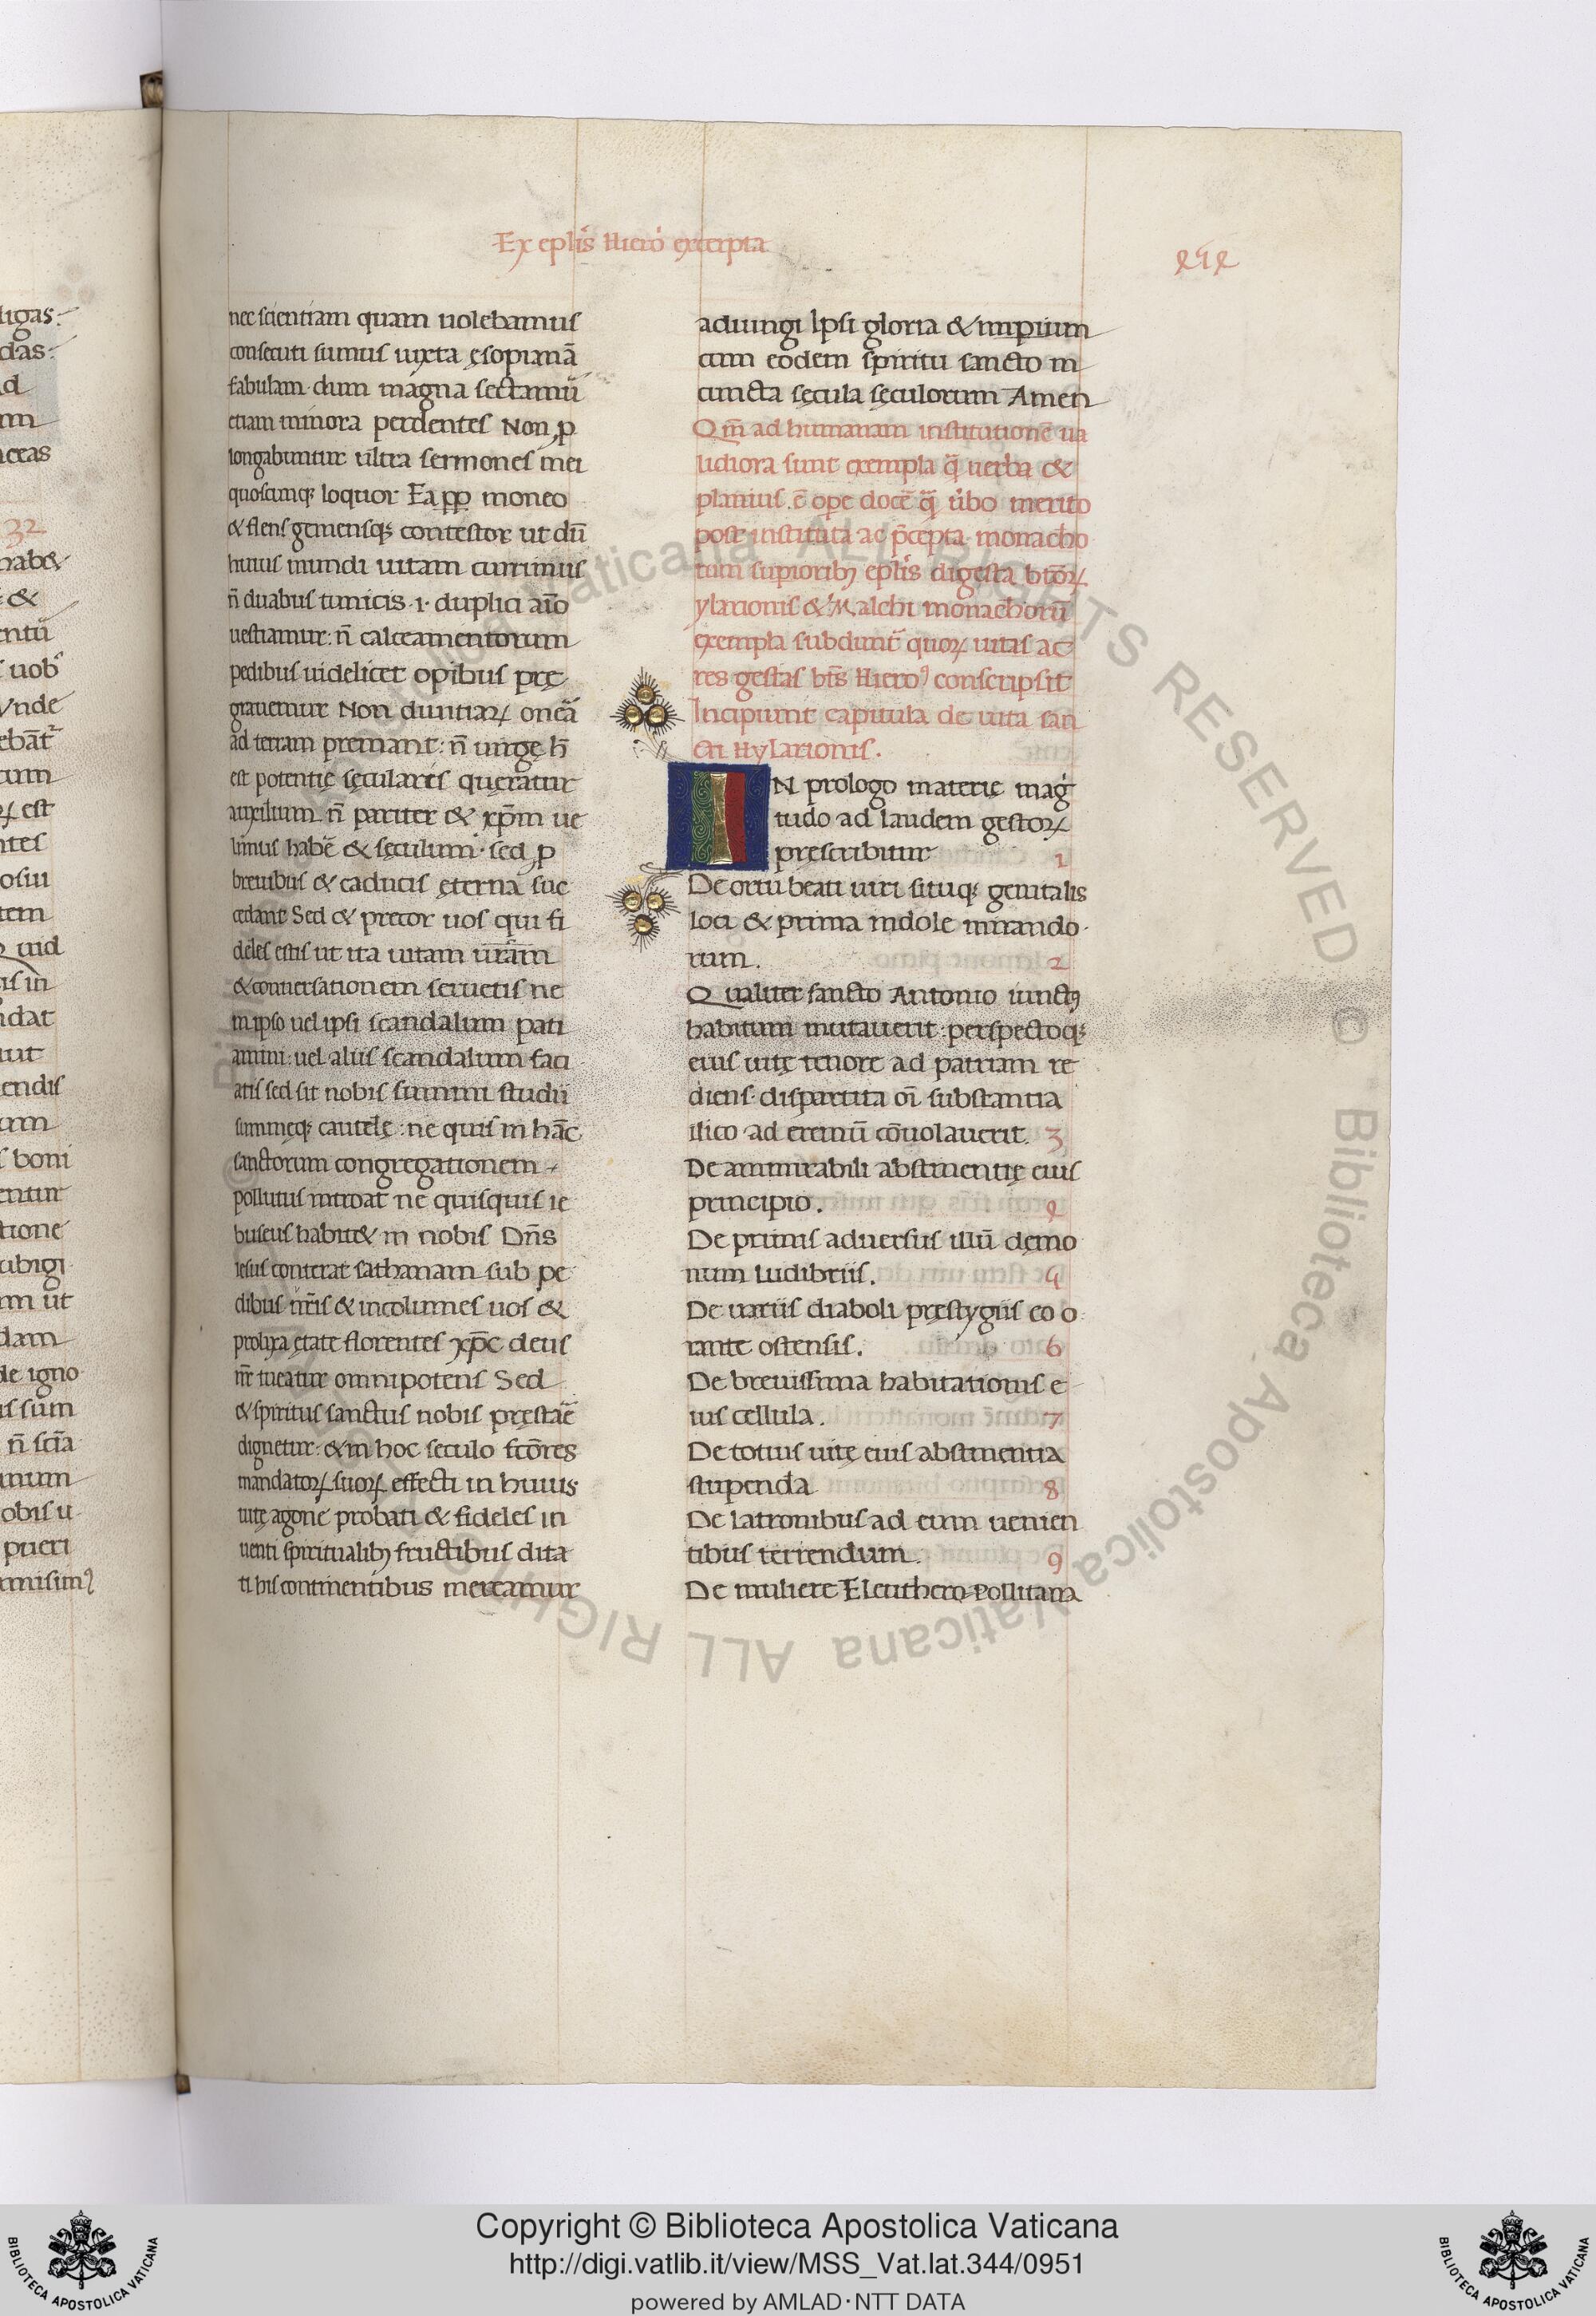 Ex eplis Hiero excerpta
nec scientiam quam uolebamus
consecuti sumus iuxta ęsopianā
fabulam· dum magna sectamur̄
etiam minora perdentes Non p
longabuntur ultra sermones mei
quoscunq; loquor Ea pp moneo
& flens gemensq; contestor ut dū
huius mundi uitam currimus
n̄ duabus tunicis ·i· duplici aīo
uestiamur: n̄ calceamentorum
pedibus uidelicet opibus pre
grauemur Non diuitiarꝝ onera
ad terram premant: n̄ uirgę h̄
est potentię sęcularis queratur
auxilium n̄ pariter & xp̄m ue
limus habē & sęculum· sed p
breuibus & caducis ęterna suc
cedant Sed & precor uos qui fi
deles estis ut ita uitam ur̄am
& conuersationem seruetis ne
in ipso uel ipsi scandalum pati
amini: uel aliis scandalum faci
atis sed sit nobis summi studii
summęq; cautelę: ne quis in hāc
sanctorum congregationem
pollutus introat ne quisquis ie
buseus habit& in nobis Dn̄s
iesus conterat sathanam sub pe
dibus nr̄is & incolumes uos &
prolixa ętate florentes xp̄c deus
nr̄ tueatur omnipotens Sed
& spiritus sanctus nobis pręstar̄e
dignetur: & in hoc seculo fcōres
mandatorꝝ suorꝝ effecti in huius
uitę agone probati & fideles in
uenti spiritualibꝫ fructibus dita
ti his continentibus mereamur
adiungi Ipsi gloria & imperium
cum eodem spiritu sancto in
cuncta sęcula sęculorum Amen
Qm̄ ad humanam institutionē ua
lidiora sunt exempla q̄ uerba &
plenius ē ope docē q̄ ubo merito
post instituta ac p̄cepta monacho
rum supioribꝫ eplis digesta btōrꝝ
ylarionis & Malchi monachorū
exempla subdunt quorꝝ uitas ac
res gestas bt̄s Hiero conscripsit
Incipiunt capitula de uita san
cti Hylarionis.
IN prologo materię mag
tudo ad laudem gestorꝝ
prescribitur 1
De ortu beati uiri situq; genitalis
loci & prima indole mirando
rum. 2
Qualiter sancto Antonio iunctꝰ
habitum mutauerit: perspectoq;
eius uitę tenore ad patriam re
diens· dispartita oī substantia
ilico ad eremū cōuolauerit. 3
De ammirabili abstinentię eius
principio. 4
De primis aduersus illū dęmo
num ludibriis. 5
De uariis diaboli pręstygiis eo o
rante ostensis. 6
De breuissima habitationis e
ius cellula. 7
De totius uitę eius abstinentia
stupenda 8
De latronibus ad eum uenien
tibus terrendum. 9
De muliere Eleuthero Pollitana
ligas:
das:
32
hab&
&
uob
Vnde
ebāt
cum
est
ntes
osiu
tem
uid
in
ndat
endis
boni
entur
tione
ubigi
ut
dam
de igno
is sum
n̄ scīa
obis u
pueri
Biblioteca Apostolica Vaticana ALL RIGHTS RESERVED ©
Biblioteca Apostolica Vaticana ALL RIGHTS RESERVED ©
Copyright © Biblioteca Apostolica Vaticana
http://digi.vatlib.it/view/MSS_Vat.lat.344/0951
powered by AMLAD·NTT DATA
BIBLIOTECA APOSTOLICA VATICANA
BIBLIOTECA APOSTOLICA VATICANA